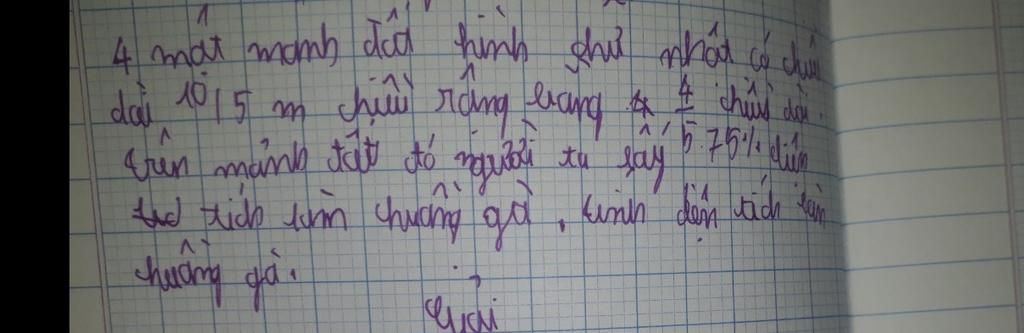 4 một mảnh đất hình chữ nhật có chiều
dài 10,5 m chiều rộng bằng 4/5 chiều dài.
trên mảnh đất đó người ta lấy 75% diện
tích làm chuồng gà. tính diện tích làm
chuồng gà.
Giải